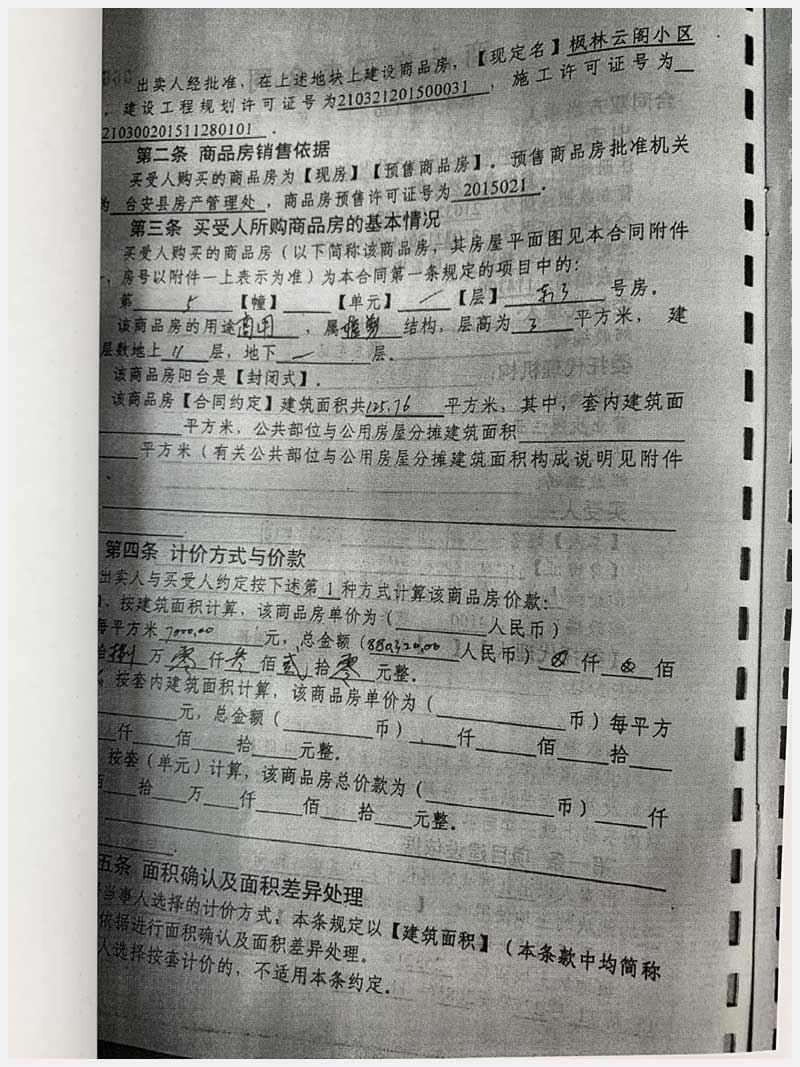 出卖人经批准，在上述地块上建设商品房，【现定名】枫林云阁小区
．建设工程规划许可证号为210321201500031，施工许可证号为
210300201511280101．
第二条 商品房销售依据
买受人购买的商品房为【现房】【预售商品房】．预售商品房批准机关
为 台安县房产管理处，商品房预售许可证号为 2015021．
第三条 买受人所购商品房的基本情况
买受人购买的商品房（以下简称该商品房，其房屋平面图见本合同附件
一，房号以附件一上表示为准）为本合同第一条规定的项目中的：
第 5 【幢】 【单元】 一 【层】 号房．
该商品房的用途商用，属 结构，层高为 3 平方米， 建
层数地上 11 层，地下 一 层．
该商品房阳台是【封闭式】．
该商品房【合同约定】建筑面积共125.76 平方米，其中，套内建筑面
平方米，公共部位与公用房屋分摊建筑面积
平方米（有关公共部位与公用房屋分摊建筑面积构成说明见附件
第四条 计价方式与价款
出卖人与买受人约定按下述第 1 种方式计算该商品房价款：
1、按建筑面积计算，该商品房单价为（ 人民币）
每平方米 7000.00 元，总金额（880320.00 人民币） 仟 佰
拾捌 万 零 仟 叁 佰 贰 拾 零 元整．
、按套内建筑面积计算，该商品房单价为（ 币）每平方
元，总金额（ 币）． 仟 佰 拾
仟 佰 拾 元整．
按套（单元）计算，该商品房总价款为（ 币） 仟
佰 拾 万 仟 佰 拾 元整．
五条 面积确认及面积差异处理
当事人选择的计价方式，本条规定以【建筑面积】（本条款中均简称
依据进行面积确认及面积差异处理．
人选择按套计价的，不适用本条约定．